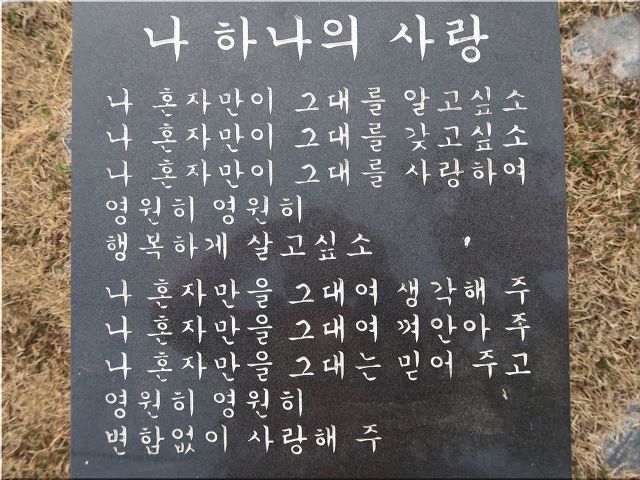 나 하나의 사랑
나 혼자만이 그대를 알고싶소
나 혼자만이 그대를 갖고싶소
나 혼자만이 그대를 사랑하여
영원히 영원히
행복하게 살고싶소
나 혼자만을 그대여 생각해 주
나 혼자만을 그대여 껴안아 주
나 혼자만을 그대는 믿어 주고
영원히 영원히
변함없이 사랑해 주